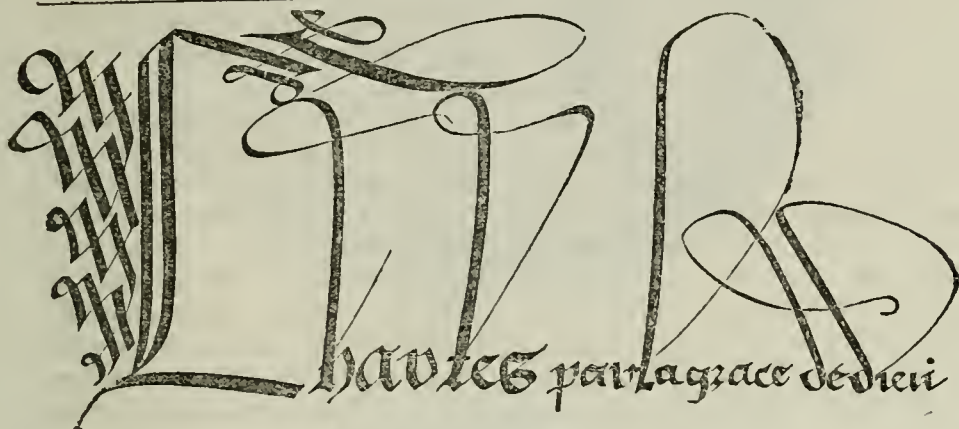 Charles par la grace de dieu